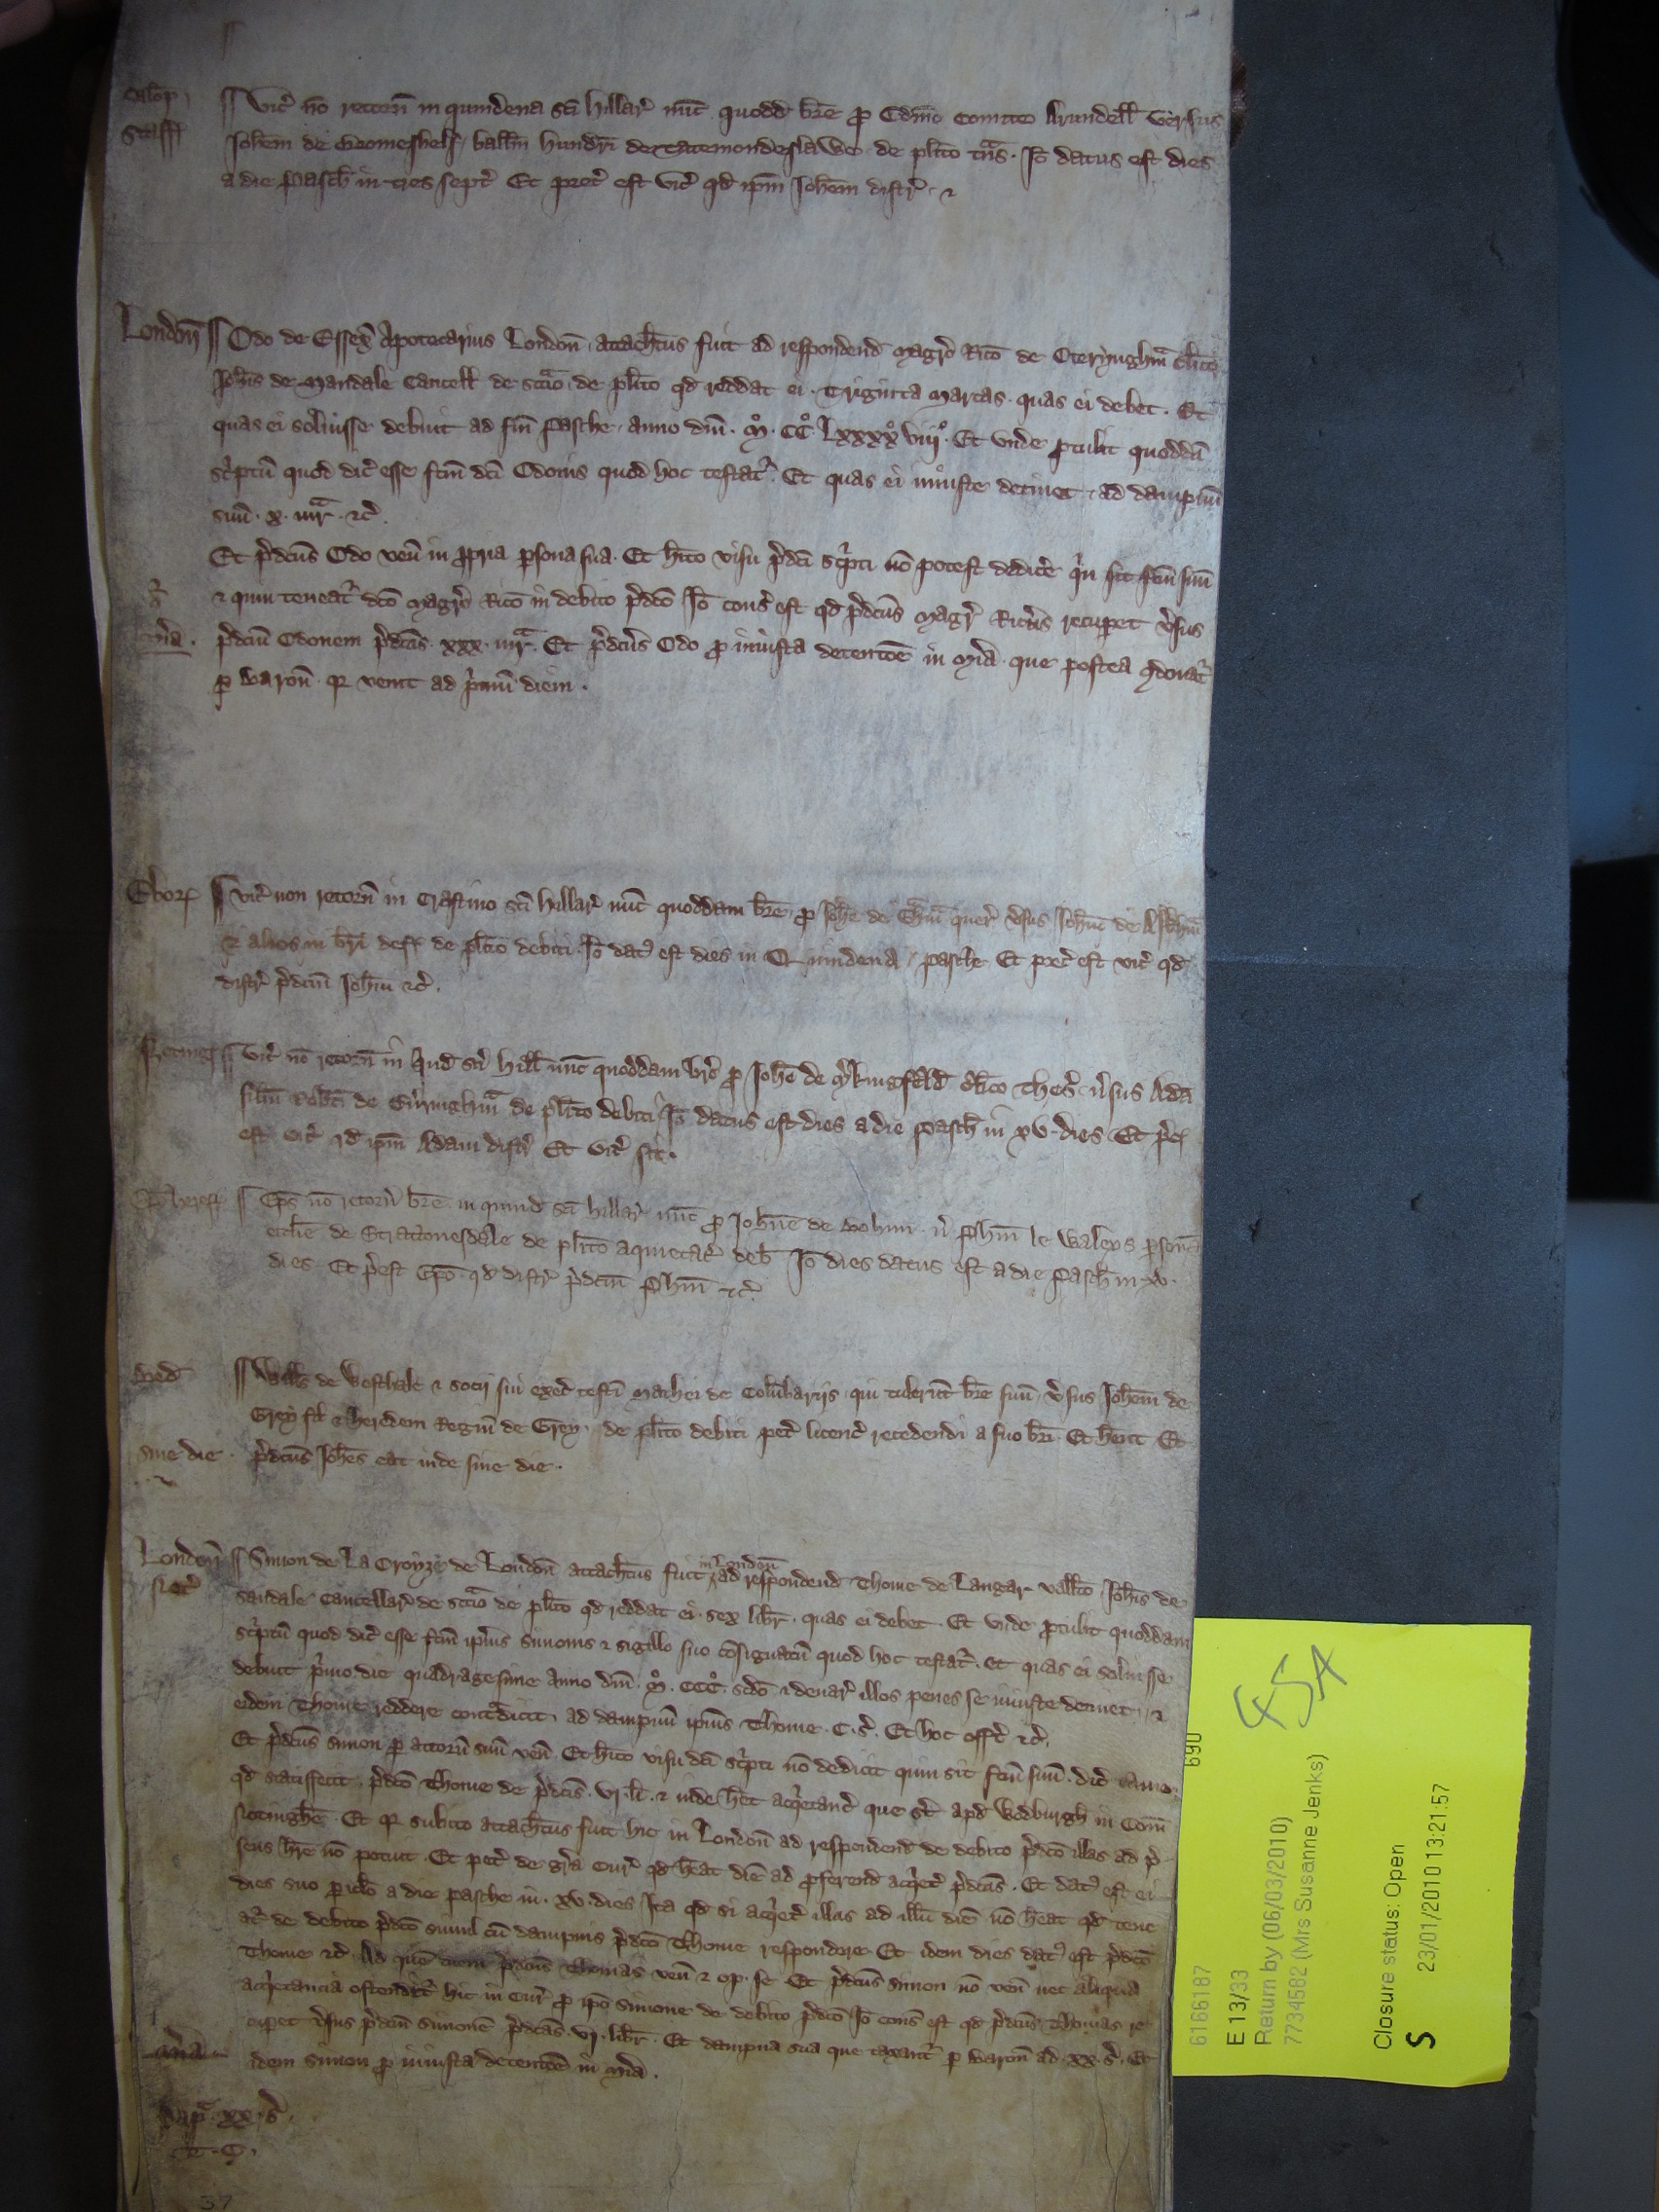 Salop
Staff
Vic̃ nõ retorñ in quindena sc̃i Hillar̃ nũc quodd̃ br̃e ꝓ Edmo Comite Arundell̃ versus
Joh̃em de Bromeshelf ball̃m Hundr̃i de Tatemondeslawe de pl̃ito tñs. Jõ datus est dies
a die Pasch̃ in tres septĩ Et prec̃ est vic̃ qd̃ ip̃m Joh̃em distr̃ ⁊
Londoñ Odo de Essex̃ Apotecarius Londoñ attach̃tus fuit ad respondend̃ Magr̃o Ric̃o de cl̃ico
Joh̃is de Sandale Cancell̃ de sc̃cio de pl̃ito qd̃ reddat ei Triginta Marcas quas ei debet. Et
quas ei soluisse debuit ad fm̃ Pasche anno dm̃. Mº. CCº. Lxxxxº viijº. Et vnde ꝓtulit quoddã
sc̃ptũ quod dic̃ esse fc̃m dc̃i Odonis quod hoc testat̃. Et quas ei iniuste detinet ad dampnũ
suũ. x. mr̃. ⁊c̃.
Et p̃dc̃us Odo veñ in ꝓpria ꝑsona sua. Et h̃ito visu p̃dc̃i sc̃pti nõ potest dedic̃e q̃n sit fc̃m suũ
⁊ quin teneat̃ dc̃o Magr̃o Ric̃o in debito p̃dc̃o Jõ cons̃ est qd̃ p̃dc̃us Magr̃ Ric̃us recuꝑet ṽsus
m̃ia.
p̃dc̃um Odonem p̃dc̃as. xxx. mr̃. Et p̃dc̃us Odo ꝓ iniusta detenc̃oe in m̃ia. que postea ꝑdonat̃
ꝑ Baroñ qr̃ venit ad p̃mũ diem.
Ebor̃ Vic̃ non retorñ in Crastino sc̃i Hillar̃ nũc quoddam br̃e ꝓ Joh̃e de quer̃ ṽsus Joh̃m de
⁊ alios in br̃i de pl̃ito debiti. Jõ dat̃ est dies in Quindena Pasche Et prec̃ est vic̃ qd̃
distr̃ p̃dc̃m Joh̃m ⁊c̃.
Vic̃ nõ retorñ in quind̃ sc̃i Hill̃ nũc quoddam br̃e ꝓ Joh̃e de M̃kingfeld̃ cl̃ico Thes̃ ṽsus Adã
filiũ Rob̃ti de de pl̃ito debiti Jõ datus est dies a die Pasch̃ in xv dies Et p̃c̃
est vic̃ qd̃ ip̃m Adam distr̃ Et vic̃ sic̃.
Ep̃s nõ retorñ br̃e in quind̃ sc̃i Hillar̃ nũc ꝓ Joh̃ne de Bohun ṽ Ph̃m le Waleys ꝑsonã
ecc̃lie de Strattonesdale de pl̃ito aquietac̃ deb̃ Jõ dies datus est a die Pasch̃ in xv.
dies. Et p̃c̃ est Ep̃o qd̃ distr̃ p̃dc̃m Ph̃m ⁊c̃.
Bed̃ Will̃s de Westhale ⁊ socij sui exec̃ test̃i Mathei de Colũbarijs qui tulerũt br̃e suũ ṽsus Joh̃em de
Grey fil̃ ⁊ heredem Regiñ de Grey. de pl̃ito debiti pet̃ licenc̃ recedendi a suo br̃i. Et h̃ent Et
sine die. p̃dc̃us Joh̃es eat inde sine die.
Londoñ Simon de La Croyz de Londoñ attach̃tus fuit in Londoñ ad respondend̃ Thome de Langar vall̃to Joh̃is de
Sandale Cancellar̃ de sc̃cio de pl̃ito qd̃ reddat ei. sex libr̃. quas ei debet. Et vnde ꝓtulit quoddam
sc̃ptũ quod dic̃ esse fc̃m ip̃ius Simonis ⁊ sigillo suo cõsignatũ quod hoc testat̃. Et quas ei soluisse
debuit p̃mo die quadragesime Anno dm̃. Mº. CCCº. sc̃do ⁊ denar̃ illos penes se iniuste detinet ⁊
eidem Thome reddere cont̃dicit. ad dampnũ ip̃ius Thome. C. s̃. Et hoc offert̃ ⁊c̃.
Et p̃dc̃us Simon ꝑ attorñ suũ veñ. Et h̃ito visu dc̃i sc̃pti nõ dedicit quin sit fc̃m suũ. dic̃ tamen
qd̃ satisfecit p̃dc̃o Thome de p̃dc̃is. vj. li. ⁊ inde h̃et acq̃etanc̃ que st̃ apd̃ Wodburgh in Com̃
Notinghẽ. Et qr̃ subito attach̃tus fuit hic in Londoñ ad respondend̃ de debito p̃dc̃o illas ad p̃-
sens h̃re nõ potuit. Et pet̃ de gr̃a Cur̃ qd̃ h̃eat diẽ ad ꝓferend̃ acq̃et̃ p̃dc̃as. Et dat̃ est ei
dies suo ꝑiclõ a die Pasche in. xv. dies Ita qd̃ si acq̃et̃ illas ad illũ diẽ nõ h̃eat qd̃ tene-
at̃ de debito p̃dc̃o simul cũ dampnis p̃dc̃o Thome respondere Et idem dies dat̃ est p̃dc̃o
Thome ⁊c̃. Ad quẽ diem p̃dc̃us Thomas veñ ⁊ op̃. se Et p̃dc̃us Simon nõ veñ nec aliqua
acq̃etancia ostendit̃ hic in Cur̃ ꝓ ip̃o Simone de debito p̃dc̃o Jõ cons̃ est qd̃ p̃dc̃us Thomas re-
cuꝑet ṽsus p̃dc̃m Simonẽ p̃dc̃as. vj. libr̃. Et dampna sua que taxant̃ ꝑ Baroñ ad. xx. s̃. Et
m̃ia
idem Simon ꝓ iniusta detenc̃oe in m̃ia.
Dap̃. xx. s̃.
T. C.
37
690
6166187
E 13/33
Return by (06/03/2010)
7734582 (Mrs Susanne Jenks)
Closure status: Open
S 23/01/2010 13:21:57